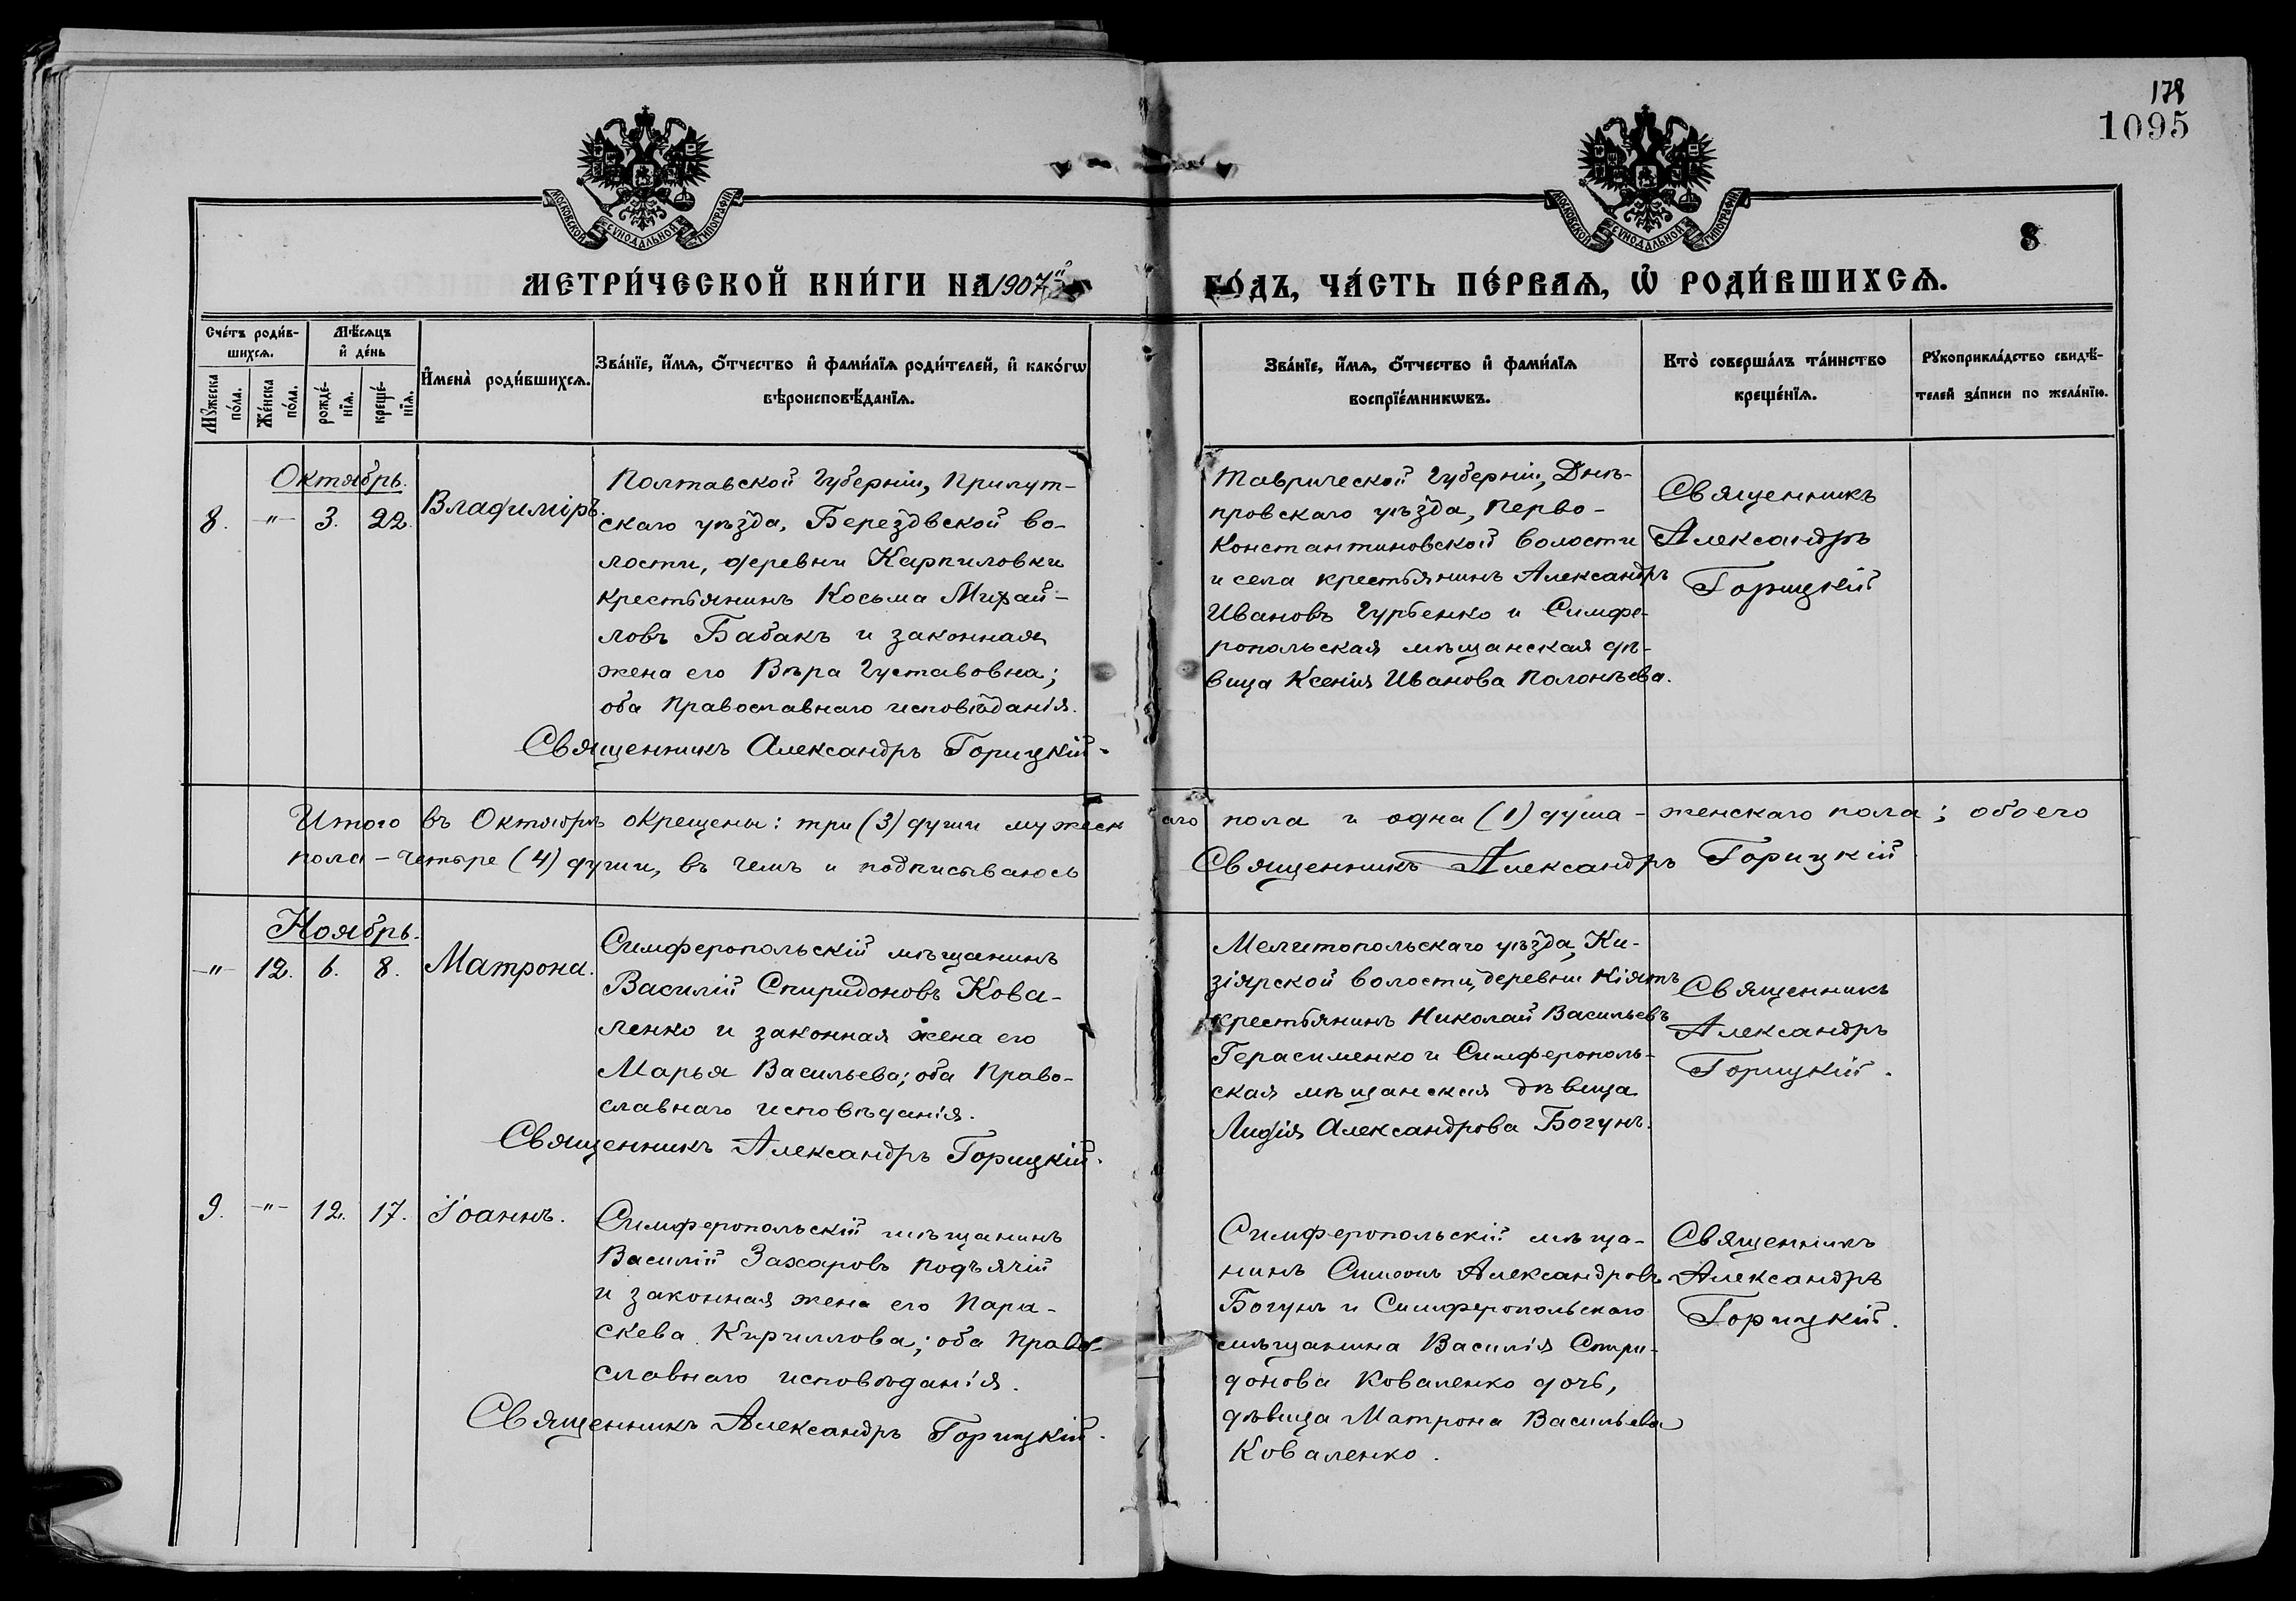 178
1095
МОСКОВСКОЙ СУНОДАЛЬНОЙ ТИПОГРАФІИ
МОСКОВСКОЙ СУНОДАЛЬНОЙ ТИПОГРАФІИ
8
МЕТРИ́ЧЕСКОЙ КНИ́ГИ НА 1907й
ГО́ДЪ, ЧА́СТЬ ПЕ́РВАѦ, Ѡ҆ РОДИ́ВШИХСѦ.
Сче́тъ роди́в-
шихсѧ.
Мѣ́сѧцъ
и҆ де́нь
Мꙋ́жеска
по́ла.
Же́нска
по́ла.
рожде́-
нїѧ.
креще́-
нїѧ.
И҆мена̀ роди́вшихсѧ.
Зва́нїе, и҆́мѧ, ѻ҆́тчество и҆ фами́лїѧ роди́телей, и҆ како́гѡ
вѣроисповѣ́данїѧ.
Зва́нїе, и҆́мѧ, ѻ҆́тчество и҆ фами́лїѧ
воспрїе́мникѡвъ.
Кто̀ соверша́лъ та́инство
креще́нїѧ.
Рꙋкоприкла́дство свидѣ́-
телей за́писи по жела́нїю.
Октябрь.
8. -"- 3. 22. Владиміръ.
Полтавской губерніи, Прилут-
скаго уѣзда, Берездвской во-
лости, деревни Карпиловки
крестьянинъ Косьма Михай-
ловъ Бабакъ и законная
жена его Вѣра Густавовна;
оба Православнаго исповѣданія.
Священникъ Александръ Горицкій
Таврической губерніи, Днѣ-
провскаго уѣзда, Перво-
Константиновской волости
и села крестьянинъ Александръ
Ивановъ Гурбенко и Симфе-
ропольская мѣщанская дѣ-
вица Ксенія Иванова Полонѣева.
Священникъ
Александръ
Горицкій
Итого въ Октябрѣ окрещены: три (3) души мужеск аго пола и одна (1) душа - женскаго пола; обоего
пола - четыре (4) души, въ чемъ и подписываюсь Священникъ Александръ Горицкій
Ноябрь.
-"- 12. 6. 8. Матрона.
Симферопольскій мѣщанинъ
Василій Спиридоновъ Кова-
ленко и законная жена его
Марья Васильева; оба Право-
славнаго исповѣданія.
Священникъ Александръ Горицкій.
Мелитопольскаго уѣзда, Ки-
зіярской волости, деревни Кіятъ
крестьянинъ Николай Васильевъ
Герасименко и Симферополь-
ская мѣщанская дѣвица
Лидія Александрова Богунъ.
Священникъ
Александръ
Горицкій.
9. -"- 12. 17. Іоаннъ.
Симферопольскій мѣщанинъ
Василій Захаровъ Подъячій
и законная жена его Пара-
скева Кириллова; оба Право-
славнаго исповѣданія.
Священникъ Александръ Горицкій.
Симферопольскій мѣща-
нинъ Симеонъ Александровъ
Богунъ и Симферопольскаго
мѣщанина Василія Спири-
донова Коваленко дочь,
дѣвица Матрона Васильева
Коваленко.
Священникъ
Александръ
Горицкій.